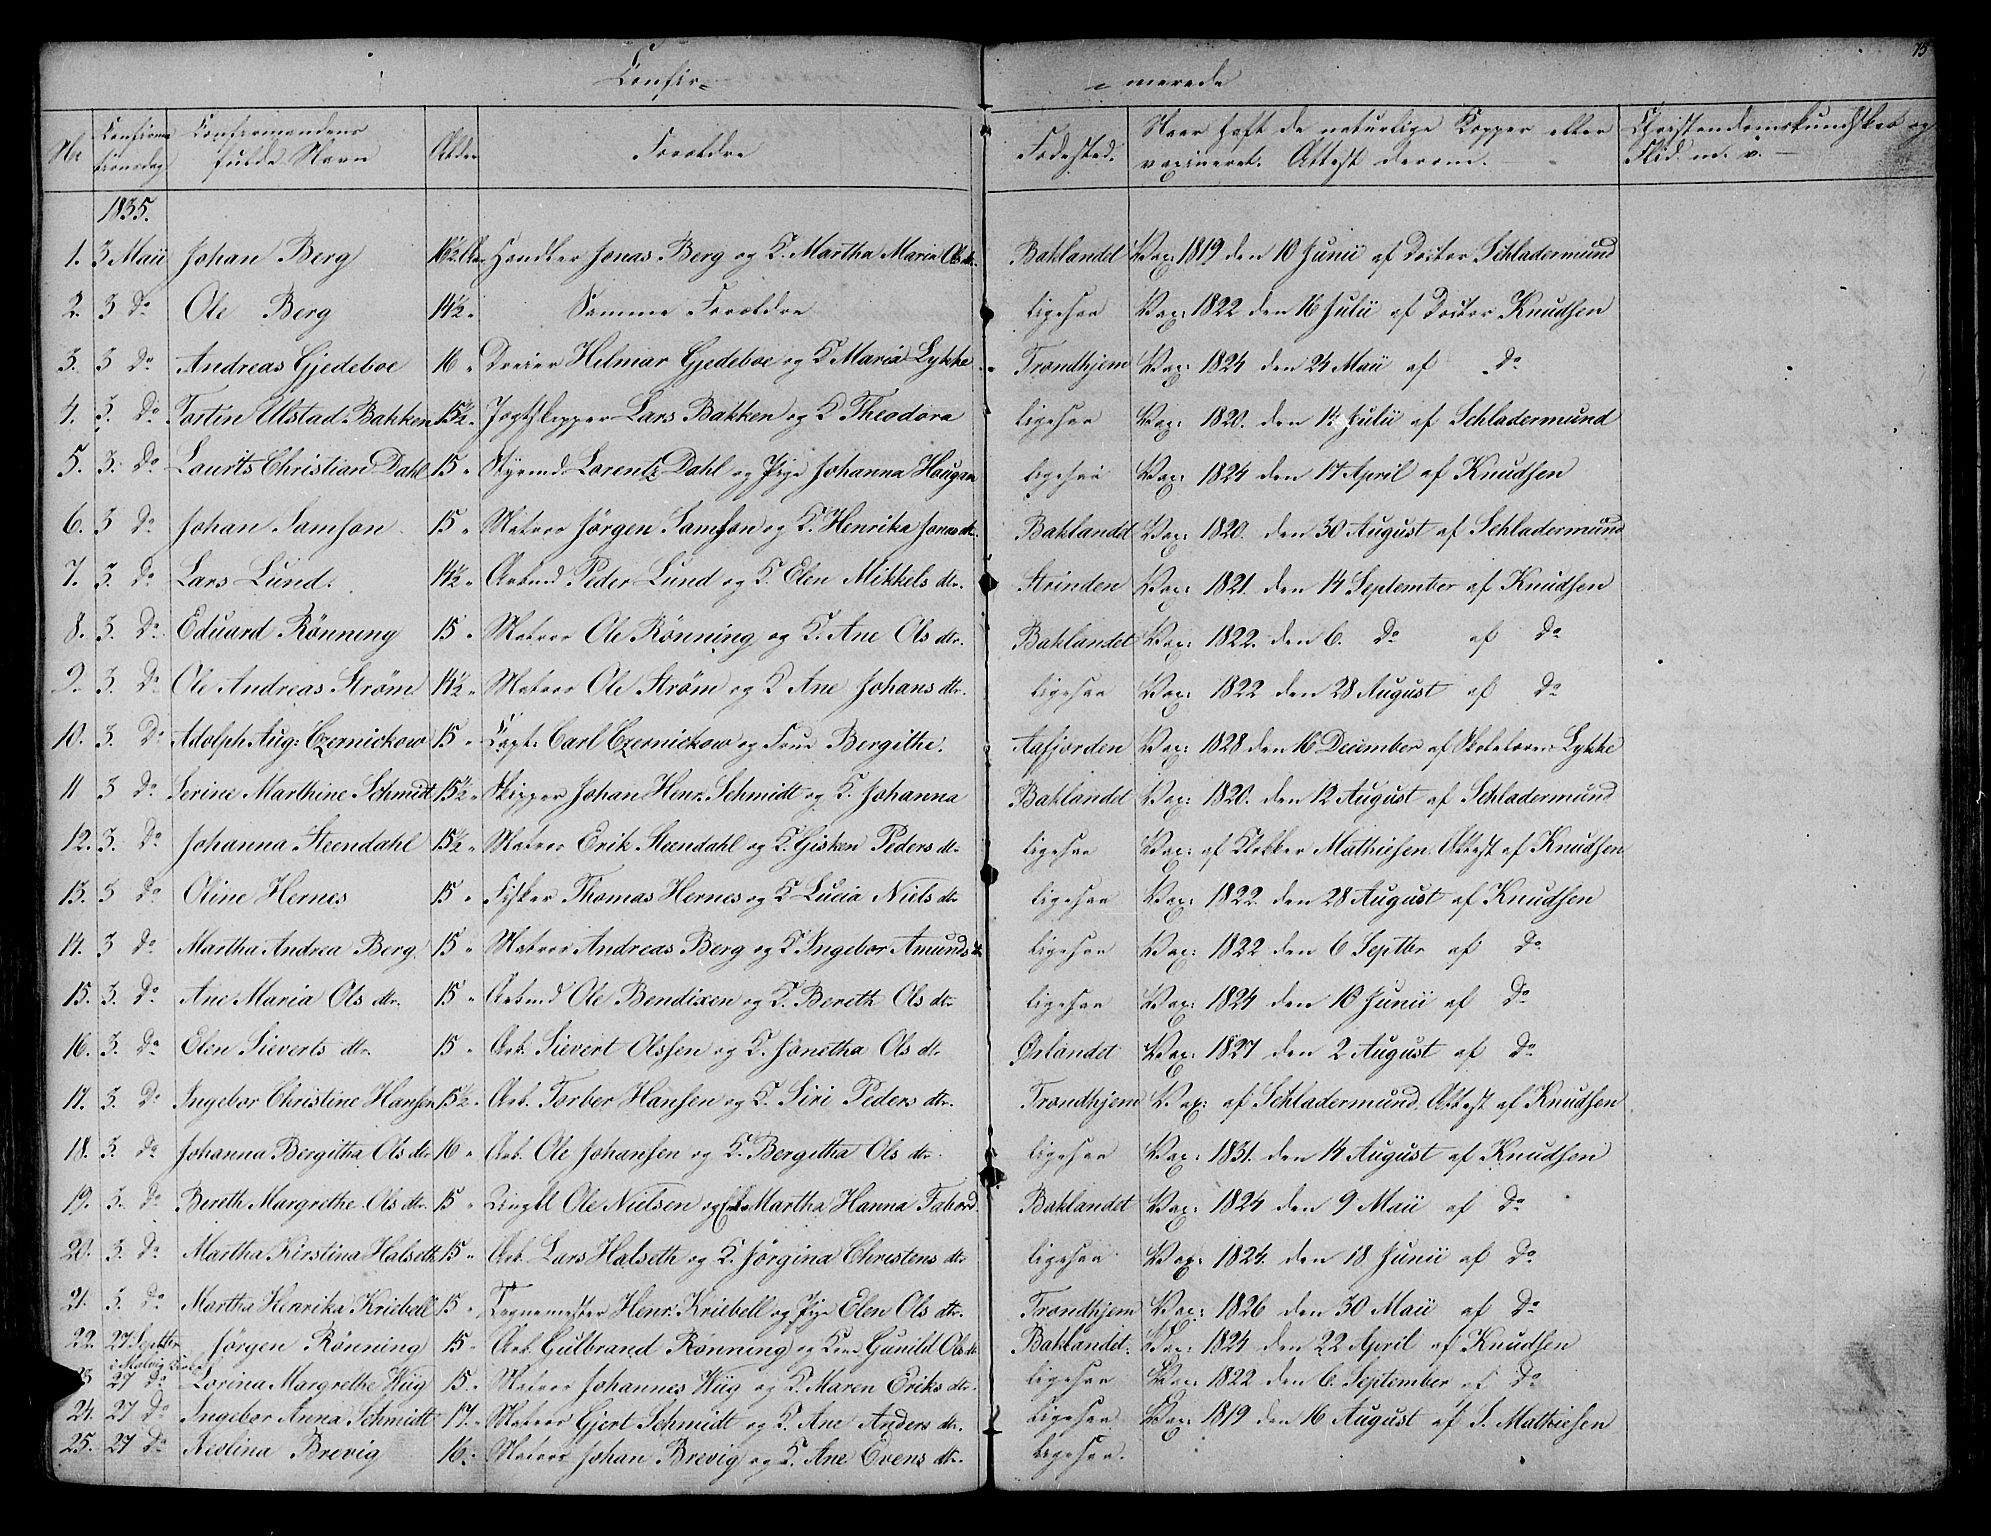 75
Confir= = merede
No Confirmationsdag Confirmandens fulde Navn Alder Forældre Fødested. Naar haft de naturlige Kopper eller vaxineret. Attest derom. Christendomskundskab og Flid m. v.
1835.
1. 3 Maii Johan Berg 16½ Aar Handler Jonas Berg og K. Martha Maria Ols dtr. Baklandet Vax: 1819 den 10 Junii af Doctor Schladermund
2. 3 Do Ole Berg 14½ " Samme Forældre ligesaa Vax: 1822 den 16 Julii af Doctor Knudsen
3. 3 Do Andreas Gjedeboe 16 " Dreier Hilmar Gjedeboe og K Maria Lykke Trondhjem Vax: 1824 den 24 Maii af Do
4. 3. Do Torsten Ulstad Bakken 15½ " Jagtskipper Lars Bakken og K Theodora ligesaa Vax: 1820. den Julii af Schladermund
5. 3. Do Laurits Christian Dahl 15 " Styrmd. Lorentz Dahl og Pige Johanna Haugan ligesaa Vax: 1824 den 17 April af Knudsen
6. 3 Do Johan Samson 15 " Matros Jørgen Samson og K. Henrika Jonas dtr. Baklandet Vax: 1820. den 30 August af Schladermund
7. 3. Do Lars Lund. 14½ " Arbmd Peder Lund og K. Elen Mikkels dtr. Strinden Vax: 1821. den 14 September af Knudsen
8. 3. Do Eduard Rönning 15 " Matros Ole Rönning og K. Ane Ols dtr. Baklandet Vax: 1822. den 6. Do af Do
9. 3. Do Ole Andreas Strøm 14½ " Matros Ole Strøm og K Ane Johans dtr. ligesaa Vax: 1822 den 28 August af Do
10. 3. Do Adolph Aug: Czernickow 15 " Capt: Carl Czernickow og Frue Bergithe. Aafjorden Vax: 1828 den 16 December af Skolelærer Lykke
11 3 Do Serine Marthine Schmidt 15½ " Skipper Johan Henr. Schmidt og K. Johanna Baklandet Vax: 1820. den 12 August af Schladermund
12. 3. Do Johanna Steendahl 15½ " Matros Erik Steendahl og K Gisken Peders dtr ligesaa Vax: af Klokker Mathiesen. Attest af Knudsen
13. 3 Do Oline Hernes 15 " Fisker Thomas Hernes og K Lucia Niels dtr ligesaa Vax: 1822. den 28 August af Knudsen
14. 3 Do Martha Andrea Berg 15 " Matros Andreas Berg og K. Ingebor Amunds dtr ligesaa Vax: 1822 den 6 Septbr af Do
15. 3. Do Ane Maria Ols dtr. 15 " Arbmd Ole Bendixen og K. Bereth Ols dtr ligesaa Vax: 1824 den 10 Junii af Do
16. 3. Do Elen Sieverts dtr. 15 " Arb. Sievert Olssen og K. Jonetha Ols dtr Ørlandet Vax: 1827 den 2 August af Do
17. 3. Do Ingebor Christine Hansen 15½ " Arb. Torber Hansen og K. Siri Peders dtr. Trondhjem Vax: af Schladermund. Attest af Knudsen
18. 3. Do Johanna Bergitha Ols dtr 16 " Arb. Ole Johansen og K. Bergitha Ols dtr. ligesaa Vax: 1831. den 14 August af Knudsen
19. 3. Do Bereth Margrethe Ols dtr. 15 " Ole Nielsen og Martha Hanna Tabord. Baklandet Vax: 1824 den 9 Maii af Do
20. 3. Do Martha Kirstina Halseth 15 " Arb. Lars Halseth og K. Jørgina Christens dtr ligesaa Vax: 1824. den 18 Junii af Do
21. 3. Do Martha Henrika Kriebell 15 " Tegnemester Henr: Kriebell og Pige Elen Ols dtr. Trondhjem Vax: 1826 den 30 Maii af Do
22. 27 Septbr Jørgen Rönning 15 " Arb. Gulbrand Rönning og Kone Gunild Ols dtr Baklandet. Vax: 1824 den 22 April af Knudsen
i Malvig Kirke
23 27 Do Lorina Margrethe Wiig 15 " Matros Johannes Wiig og K. Maren Eriks dtr. ligesaa Vax: 1822 den 6. September af Do
24. 27 Do Ingebor Anna Schmidt 17. " Matros Gjert Schmidt og K. Ane Anders dtr. ligesaa Vax: 1819 den 16 August af S. Mathiesen
25. 27 Do Neolina Brevig 16. " Matros Johan Brevig og K. Ane Evens dtr. ligesaa.